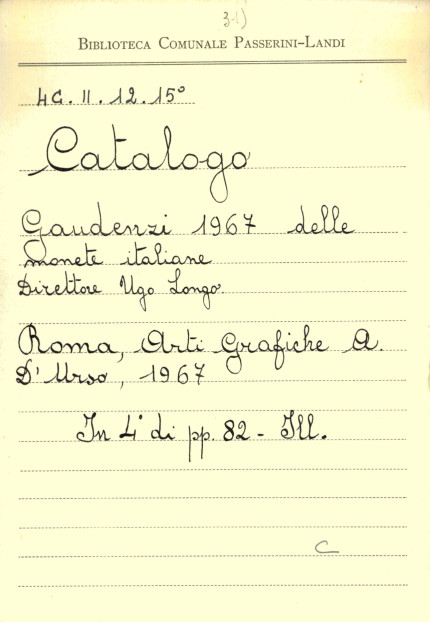 3-1)
BIBLIOTECA COMUNALE PASSERINI-LANDI
4C. II. 12. 15°
Catalogo
Gaudenzi 1967 delle
monete italiane
Direttore Ugo Longo.
Roma, Arti Grafiche A.
D'Urso, 1967
In 4° di pp. 82 - Ill.
C